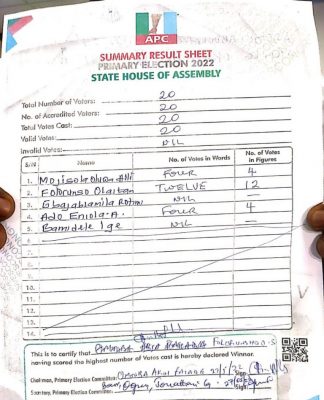 APC
SUMMARY RESULT SHEET
PRIMARY ELECTION 2022
STATE HOUSE OF ASSEMBLY
Total Number of Voters: 20
No. of Accredited Voters: 20
Total Votes Cast: 20
Valid Votes: 20
Invalid Votes: NIL
S/N Name No. of Votes in Words No. of Votes in Figures
1. Mojisola Ali FOUR 4
2. Folorunso Olaitan TWELVE 12
3. Gbajabiamila NIL —
4. Ade Eniola A. FOUR 4
5. Bamidele Ige NIL —
6.
7.
8.
9.
10.
11.
12.
13.
14.
This is to certify that FOLORUNSHO
having scored the highest number of Votes cast is hereby declared Winner.
Chairman, Primary Election Committee
Secretary, Primary Election Committee